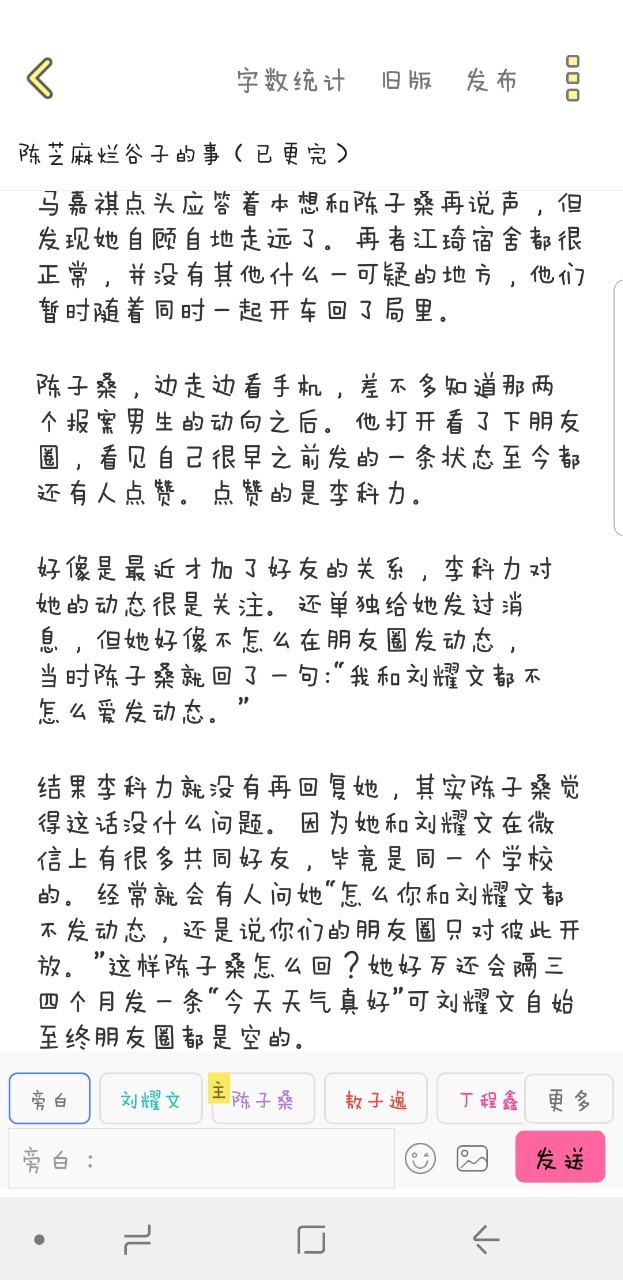 字数统计 旧版 发布
陈芝麻烂谷子的事（已更完）
马嘉祺点头应答着本想和陈子桑再说声，但
发现她自顾自地走远了。再者江琦宿舍都很
正常，并没有其他什么一可疑的地方，他们
暂时随着同时一起开车回了局里。
陈子桑，边走边看手机，差不多知道那两
个报案男生的动向之后。他打开看了下朋友
圈，看见自己很早之前发的一条状态至今都
还有人点赞。点赞的是李科力。
好像是最近才加了好友的关系，李科力对
她的动态很是关注。还单独给她发过消
息，但她好像不怎么在朋友圈发动态，
当时陈子桑就回了一句:“我和刘耀文都不
怎么爱发动态。”
结果李科力就没有再回复她，其实陈子桑觉
得这话没什么问题。因为她和刘耀文在微
信上有很多共同好友，毕竟是同一个学校
的。经常就会有人问她“怎么你和刘耀文都
不发动态，还是说你们的朋友圈只对彼此开
放。”这样陈子桑怎么回？她好歹还会隔三
四个月发一条“今天天气真好”可刘耀文自始
至终朋友圈都是空的。
旁白 刘耀文 主 陈子桑 敖子逸 丁程鑫 更多
旁白： 发送